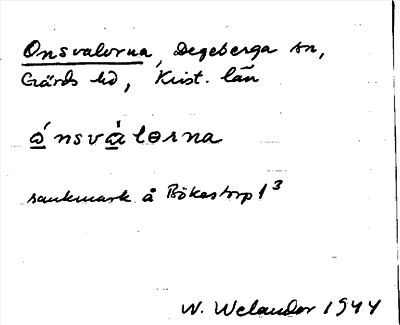 Onsvalorna, Degeberga sn,
Gärds hd, Krist. län
ó̲nsvà̲lɵrna
sankmark å Bökestorp 1³
W. Welander 1944